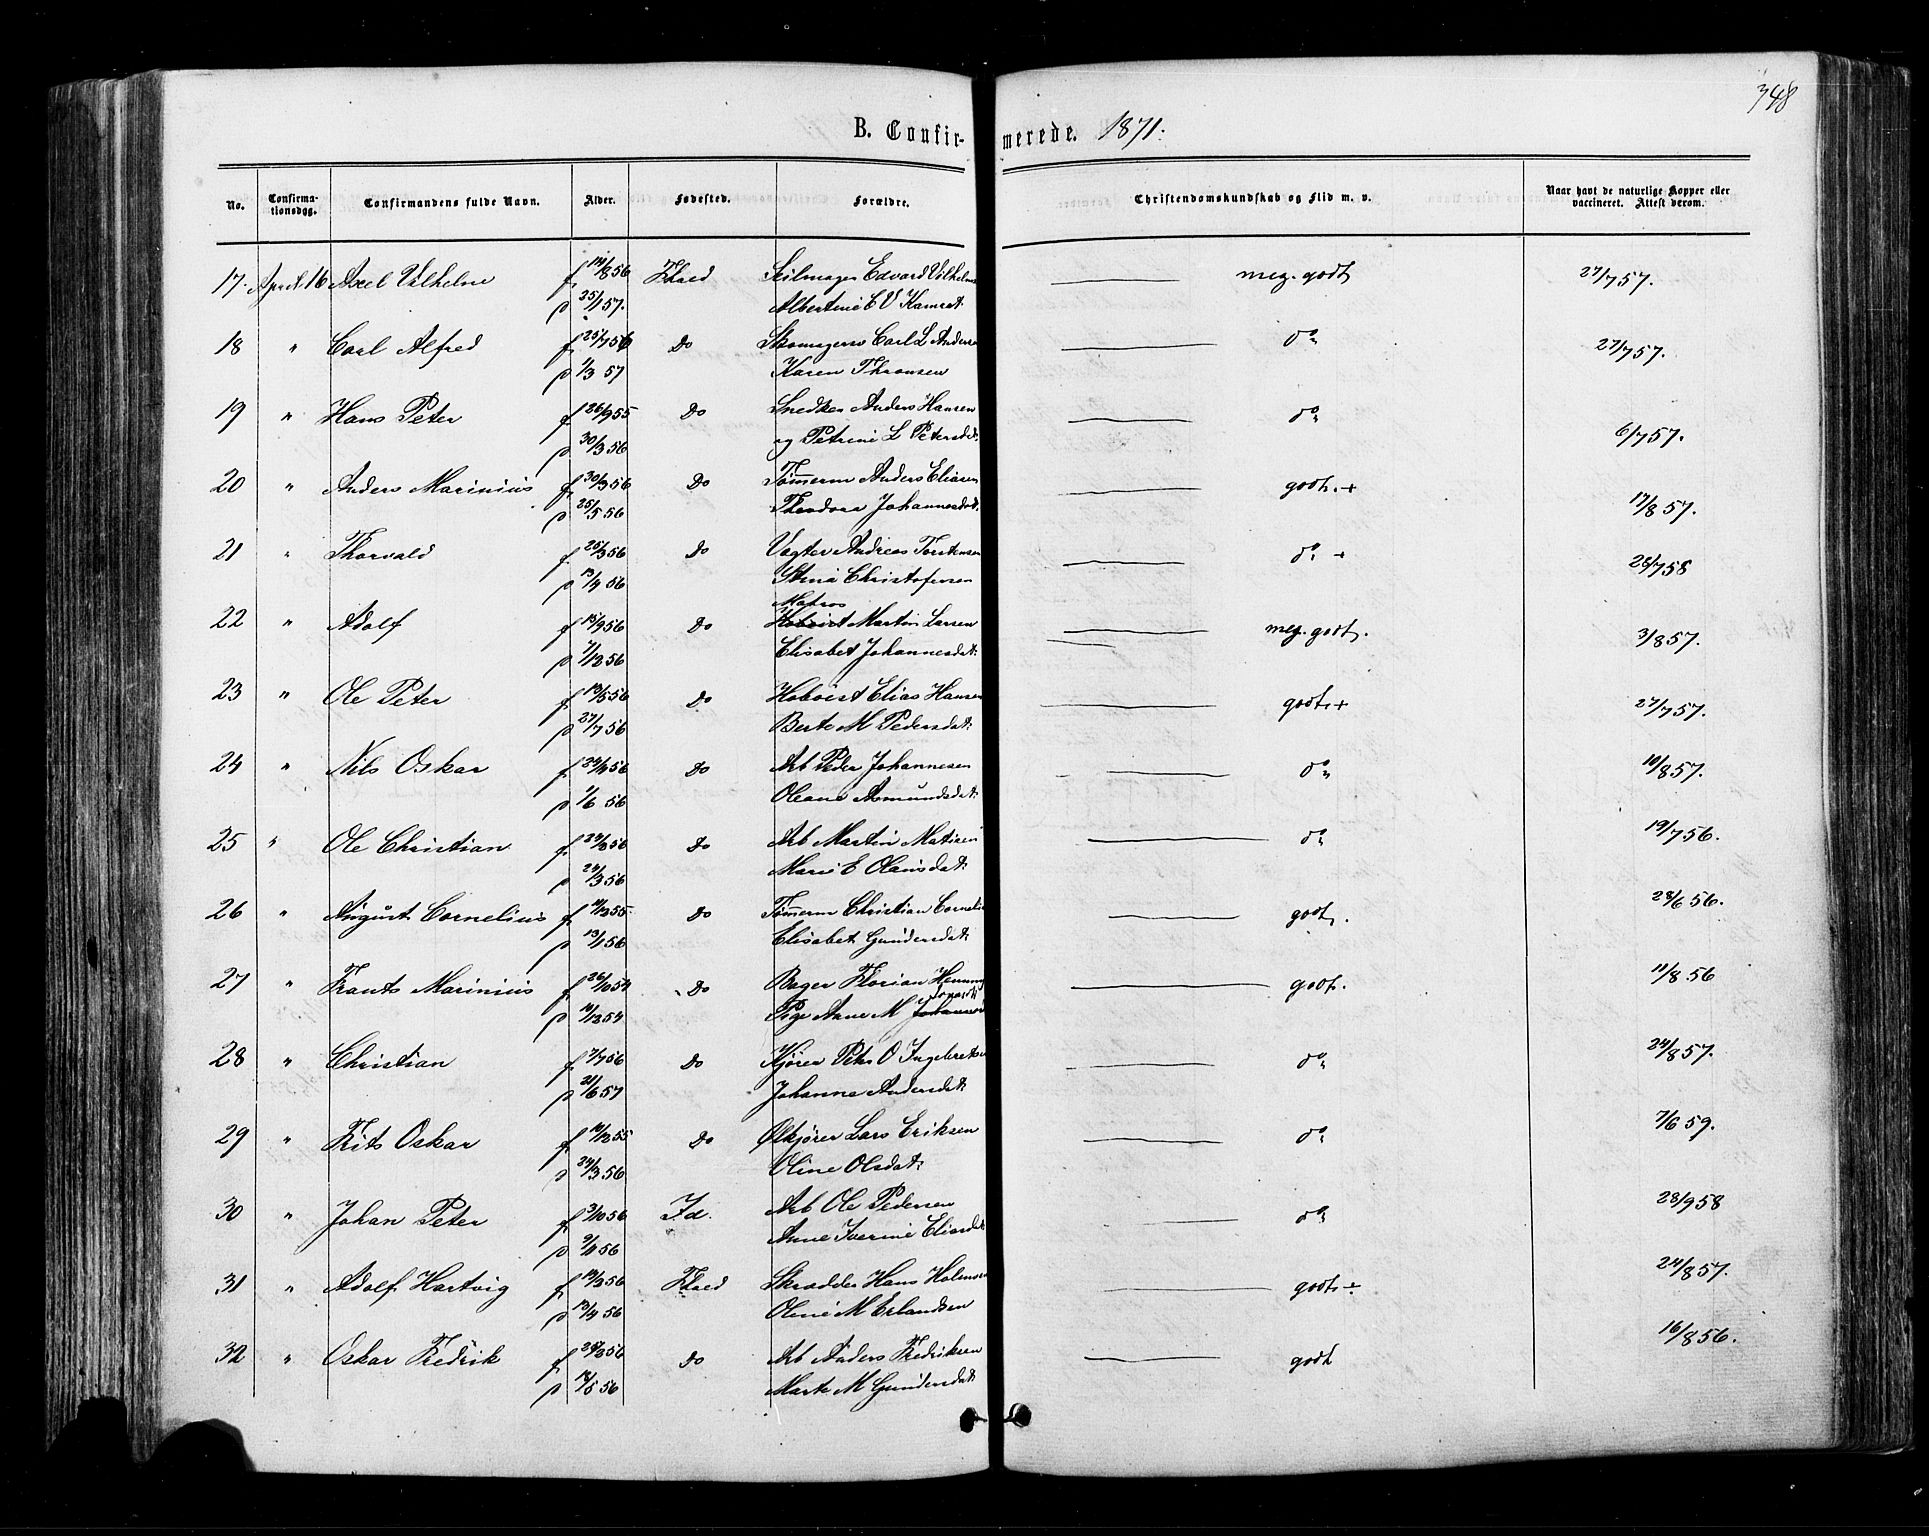 348
B. Confirmerede. 1871.
No. Confirmationsdag. Confirmandens fulde Navn. Alder. Fødested. Forældre. Christendomskundskab og Flid m. v. Naar havt de naturlige Kopper eller vaccineret. Attest derom.
17. April 16 Axel Vilhelm f 14/8 56 Fhald Seilmager Edvard Vilhelmsen meg. godt 27/7 57.
p 25/1 57. Albertine E V Kamrat
18 " Carl Alfred f 25/7 56 Do Skomagersv Carl L Anderse do 27/7 57.
p 1/3 57 Karen Thronsen
19 " Hans Peter f 26/9 55 Do Snedker Anders Hansen do 6/7 57.
p 30/3 56 og Petrine L Petersdat.
20 " Anders Marinius f 30/3 56 Do Tømerm Anders Eliasen godt. + 17/8 57.
p 25/5 56 Theodora Johannesdat.
21 " Thorvald f 25/3 56 Do Vægter Andreas Torstensen do + 28/7 58
p 13/4 56 Stine Christofersen
Matros
22 " Adolf f 15/9 56 Do Hobøist Martin Larsen meg. godt. 3/8 57.
p 7/12 56 Elisabet Johannesdat.
23 " Ole Peter f 19/5 56 Do Hoboist Elias Hansen godt. + 27/7 57.
p 27/7 56 Berte M Pedersdat.
24 " Nils Oskar f 24/4 56 Do Arb Peder Johannesen do 10/8 57.
p 1/6 56 Oleane Asmundsdat.
25 " Ole Christian f 24/3 56 Do Arb Martin Matisen do 19/7 56.
p 24/3 56 Marie E Olausdat.
26 " August Cornelius f 11/12 55. Do Tømerm Christian Corneliu godt. 28/6 56.
p 13/1 56 Elisabet Gundersdat.
27 " Frants Marinius f 26/10 54 Do Bager Florian Hemming godt. 11/8 56
p 10/12 54 Pige Anne M Johannesd
28 " Christian f 7/7 56 Do Kjører Peter O Ingebretse do 24/8 57.
p 21/6 57 Johanne Andersdat.
29 " Frits Oskar f 10/12 55 Do Ølkjører Lars Eriksen do 7/6 59.
p 24/3 56 Oline Olsdat.
30 " Johan Peter f 3/10 56 Id. Arb Ole Pedersen do 28/9 58
p 9/11 56 Anne Iverine Eliasdat
31 " Adolf Hartvig f 14/3 56 Fhald Skrædder Hans Halvorsen godt. ÷ 24/8 57.
p 13/4 56 Oline M Erlandsen
32 " Oskar Fredrik f 29/3 56 Do Arb Anders Fredriksen godt 16/8 56.
p 18/5 56 Marte M Gundersdat.